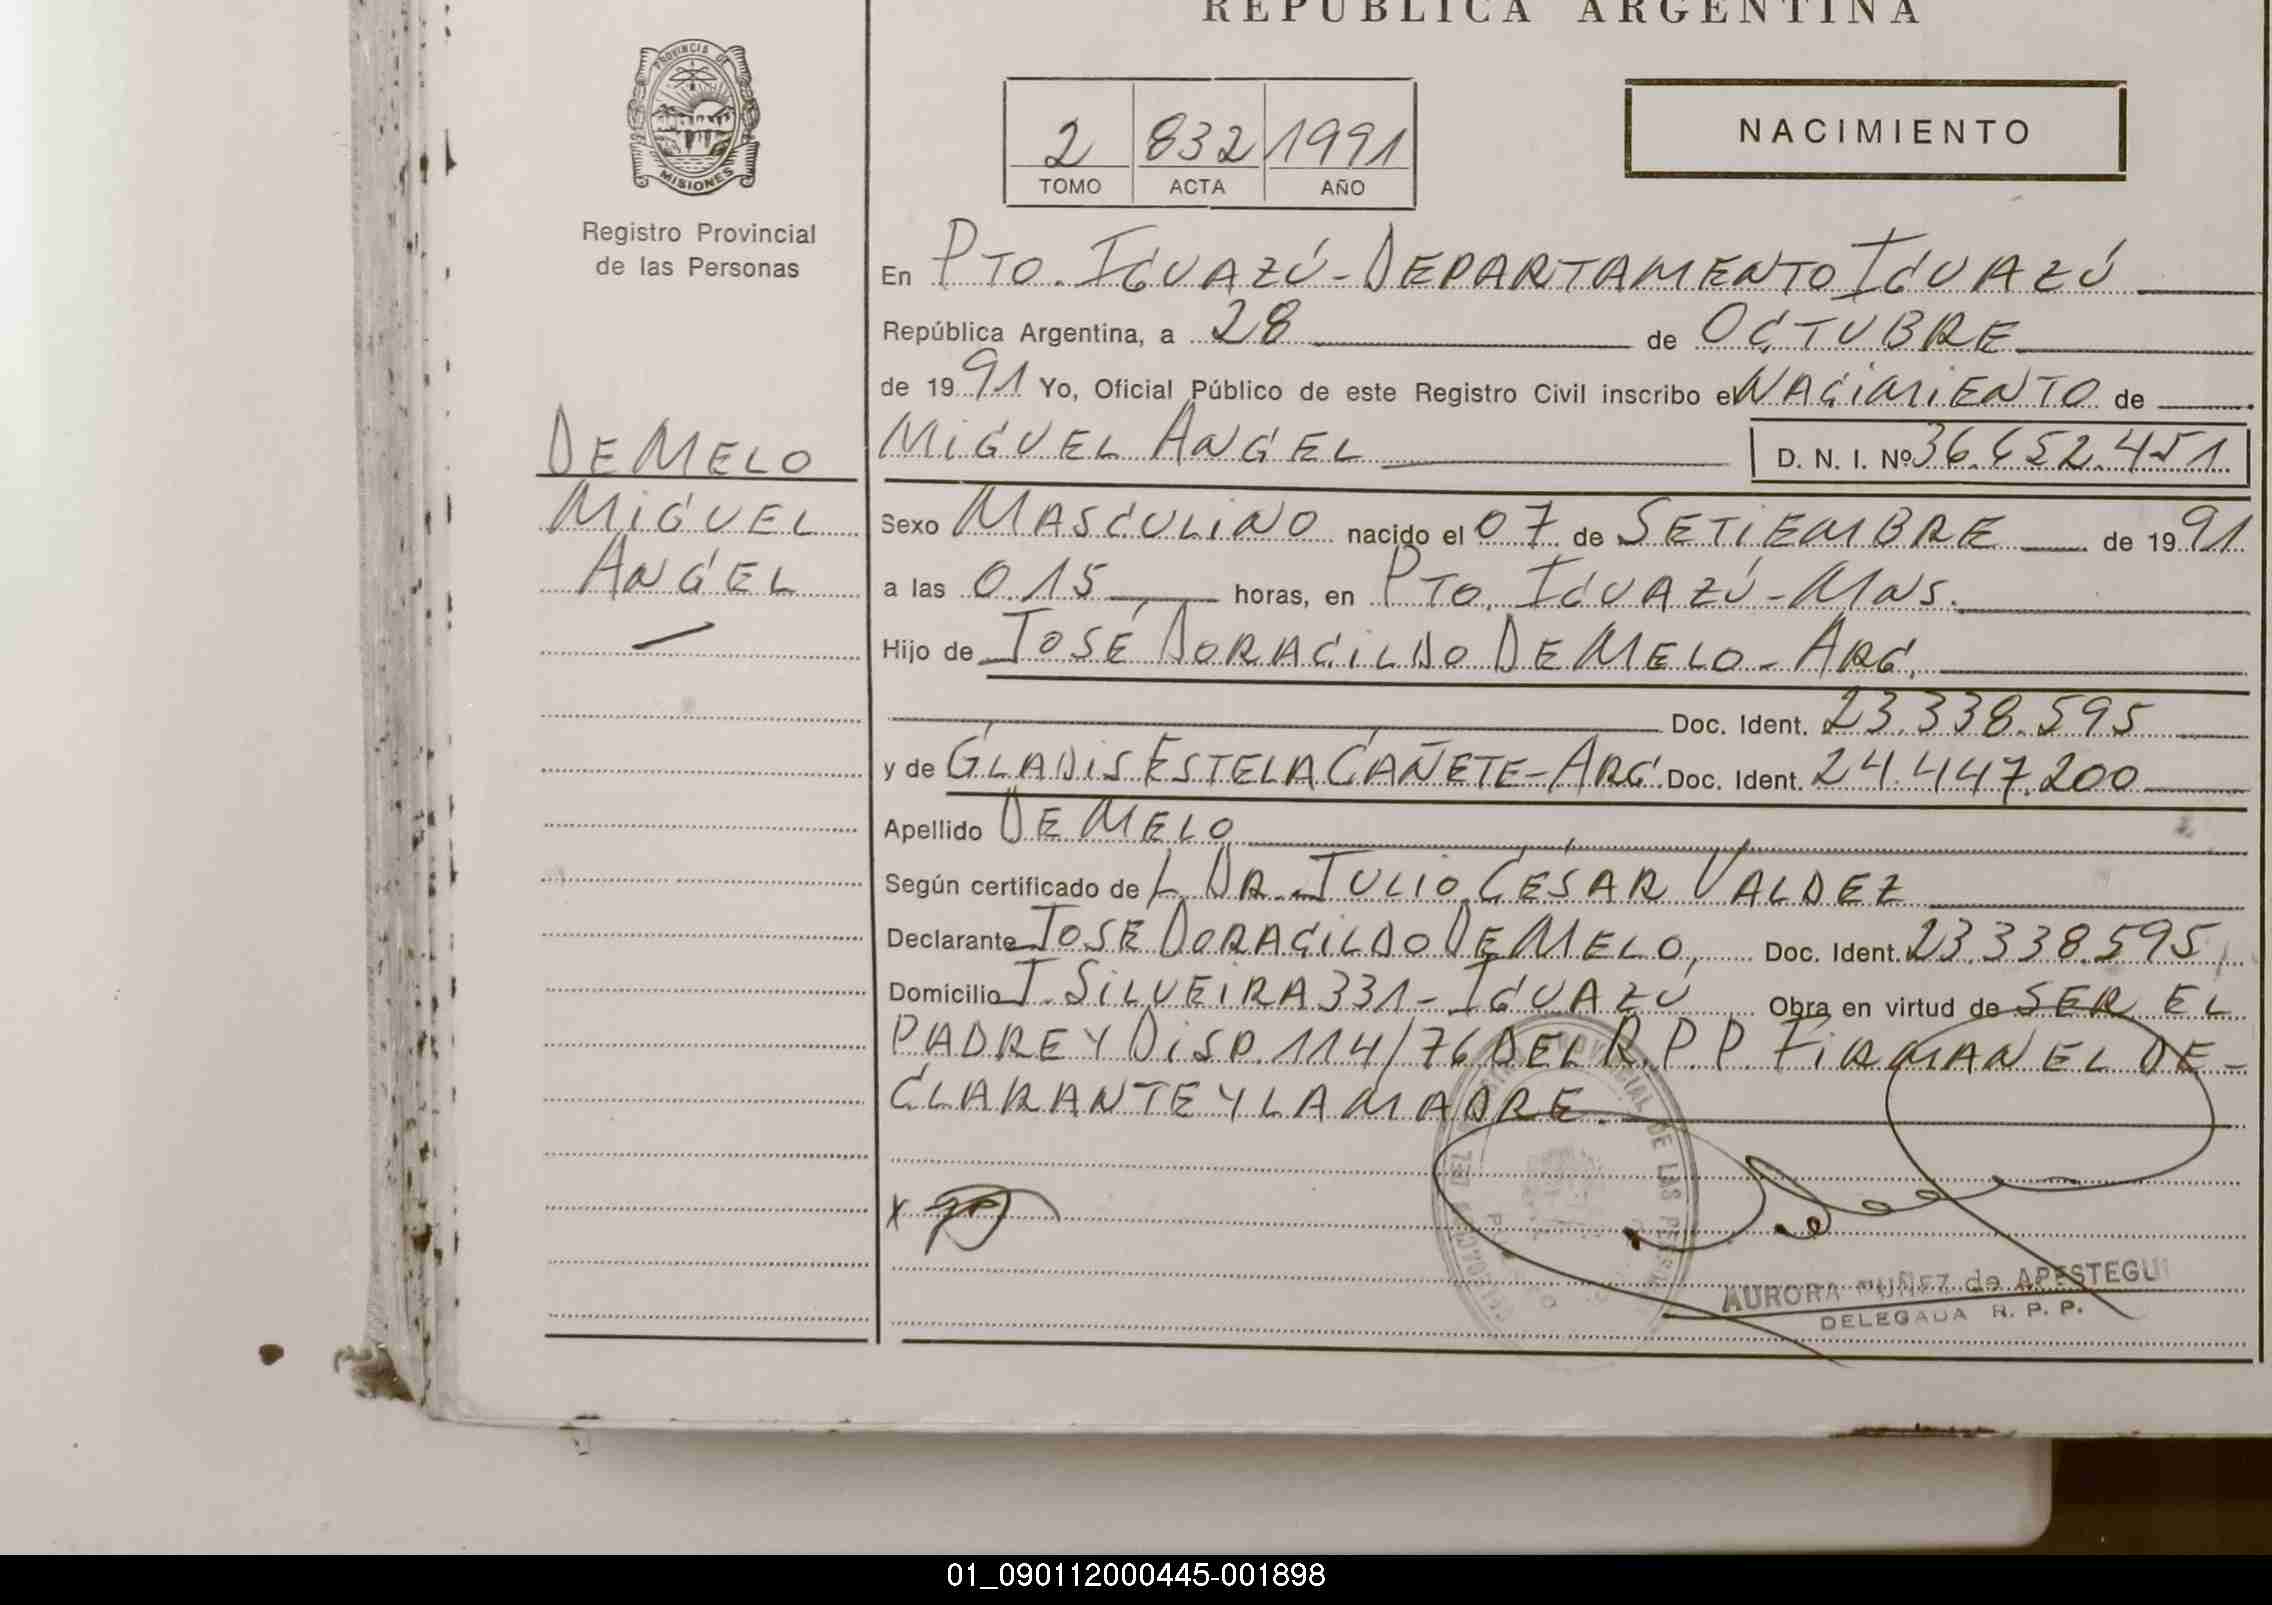 REPUBLICA ARGENTINA
PROVINCIA DE
MISIONES
Registro Provincial
de las Personas
2 832 1991
TOMO ACTA AÑO
NACIMIENTO
En PTO. IGUAZÚ - DEPARTAMENTO IGUAZÚ
República Argentina, a 28 de OCTUBRE
de 1991 Yo, Oficial Público de este Registro Civil inscribo el NACIMIENTO de
DE MELO
MIGUEL ANGEL D. N. I. Nº 36.652.451
MIGUEL
ANGEL
Sexo MASCULINO nacido el 07 de SETIEMBRE de 1991
a las 0.15 horas, en PTO. IGUAZÚ - MNS.
Hijo de JOSÉ DORACILDO DE MELO - ARG.
Doc. Ident. 23.338.595
y de GLADIS ESTELA CAÑETE - ARG. Doc. Ident. 24.447.200
Apellido DE MELO
Según certificado de L. DR. JULIO CÉSAR VALDEZ
Declarante JOSE DORACILDO DE MELO, Doc. Ident. 23.338.595,
Domicilio J. SILVEIRA 331 - IGUAZÚ Obra en virtud de SER EL
PADRE Y DISP. 114/76 DEL R.P.P. FIRMAN EL DE-
CLARANTE Y LA MADRE.
X
AURORA NUÑEZ de APESTEGUI
DELEGADA R. P. P.
01_090112000445-001898